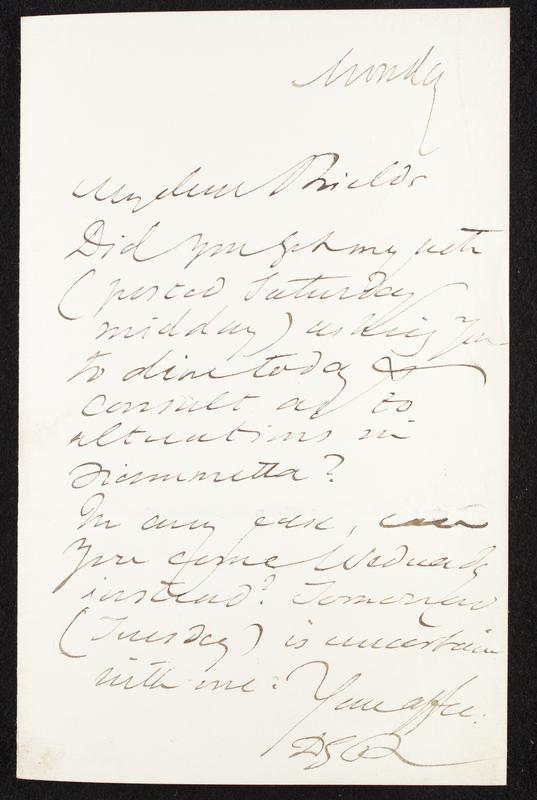 Monday
My dear Shields
Did you get my note
(posted Saturday
midday) asking you
to dine today &
consult as to
alterations in
Fiammetta?
In any case, can
you come Wednesday
instead? Tomorrow
(Tuesday) is uncertain
with me.
Your affec.
DGR